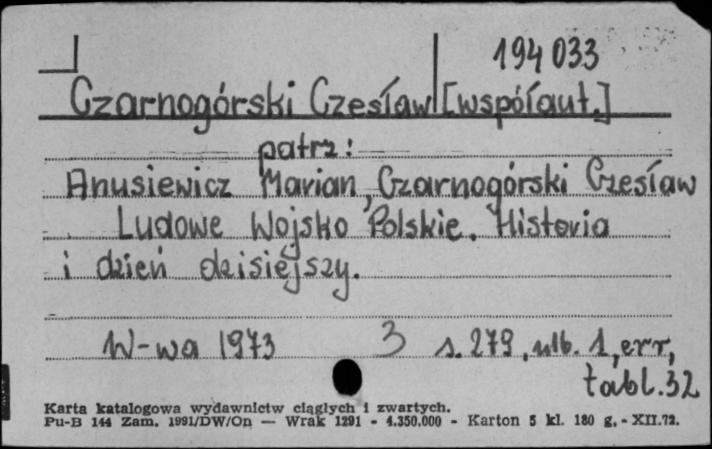 194 033
Czarnogórski Czesław [współaut.]
patrz:
Anusiewicz Marian, Czarnogórski Czesław
Ludowe Wojsko Polskie. Historia
i dzień dzisiejszy.
W-wa 1973 3 s. 279, nlb. 1, err,
tabl. 32
Karta katalogowa wydawnictw ciągłych i zwartych.
Pu-B 144 Zam. 1991/DW/On — Wrak 1291 - 4.350.000 - Karton 5 kl. 180 g. - XII.72.